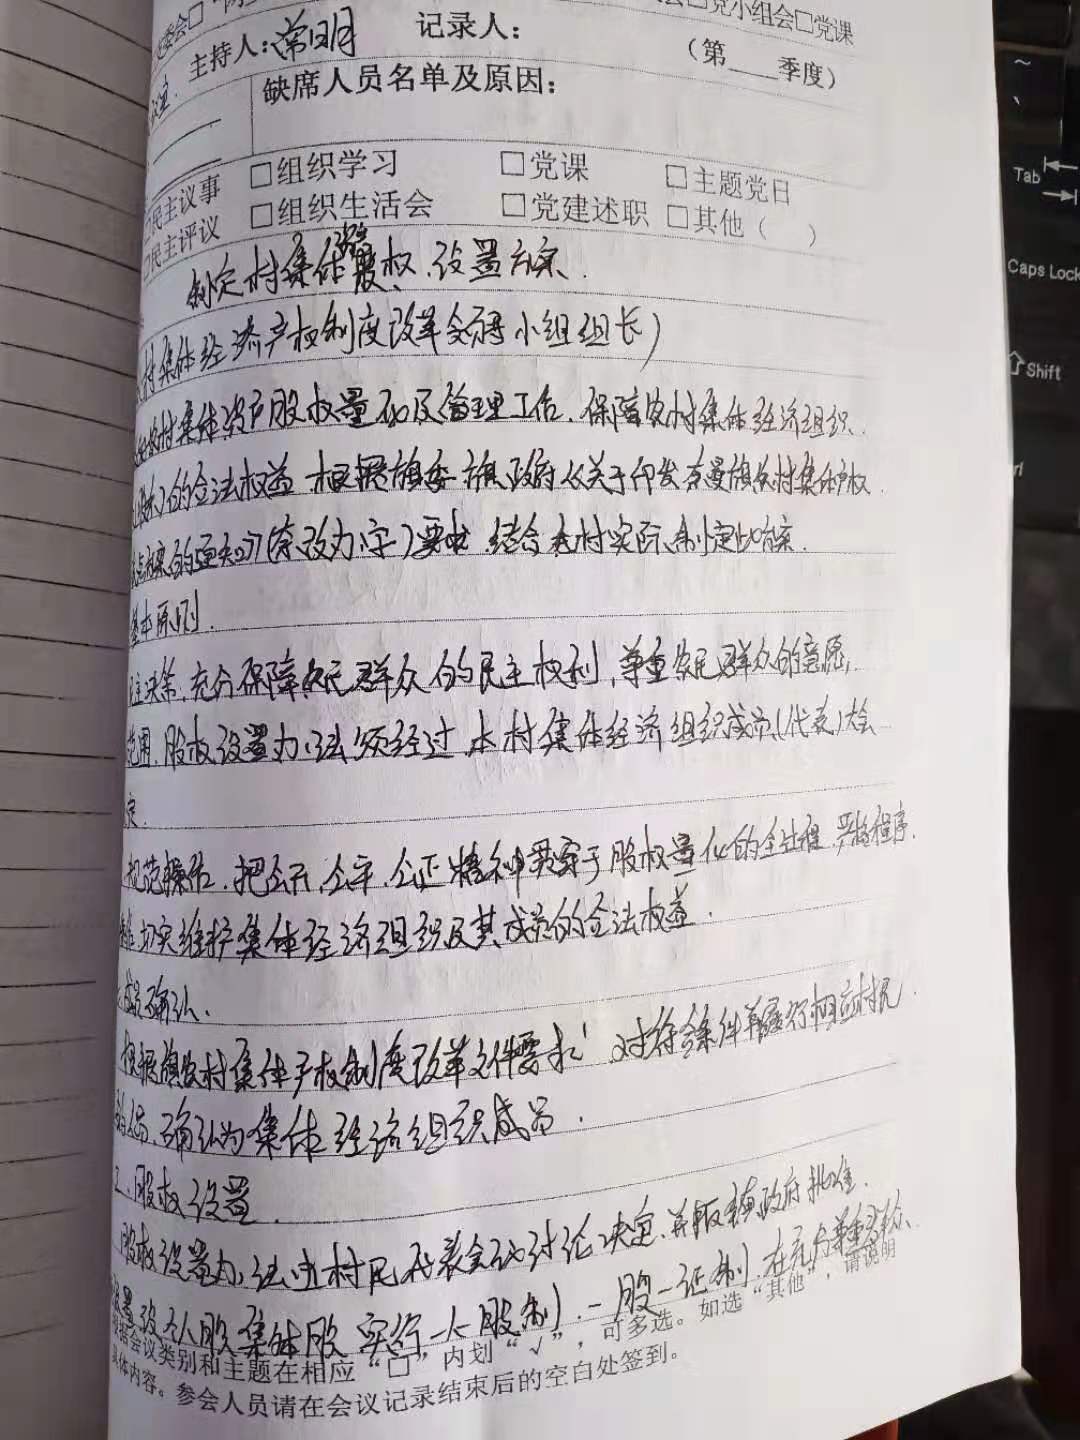 委会□ 党小组会□党课
主持人：常明 记录人： （第____季度）
缺席人员名单及原因：
□组织学习 □党课 □主题党日
□民主议事
□组织生活会 □党建述职 □其他（ ）
□民主评议
制定村集体股权设置方案.
村集体经济产权制度改革领导小组组长)
村集体资产股权量化及管理工作.保障农村集体经济组织
的合法权益 根据旗委旗政府《关于印发奈曼旗农村集体产权
的通知》(奈改办字)要求.结合本村实际.制定此方案.
基本原则.
决策,充分保障农民群众的民主权利,尊重农民群众的意愿,
范围.股权设置办法须经过本村集体经济组织成员(代表)大会
定.
规范操作.把公开.公平.公正精神贯穿于股权量化的全过程.严格程序.
切实维护集体经济组织及其成员的合法权益.
成员确认.
根据旗农村集体产权制度改革文件要求:对符合条件并履行相应村民
的人员,确认为集体经济组织成员.
2.股权设置.
股权设置办法由村民代表会议讨论决定.并报镇政府批准.
设个人股集体股 实行一人一股制.一股一证制.在充分尊重群众
根据会议类别和主题在相应“□”内划“√”，可多选。如选“其他”，请说明
具体内容。参会人员请在会议记录结束后的空白处签到。
Tab
Caps Lock
Shift